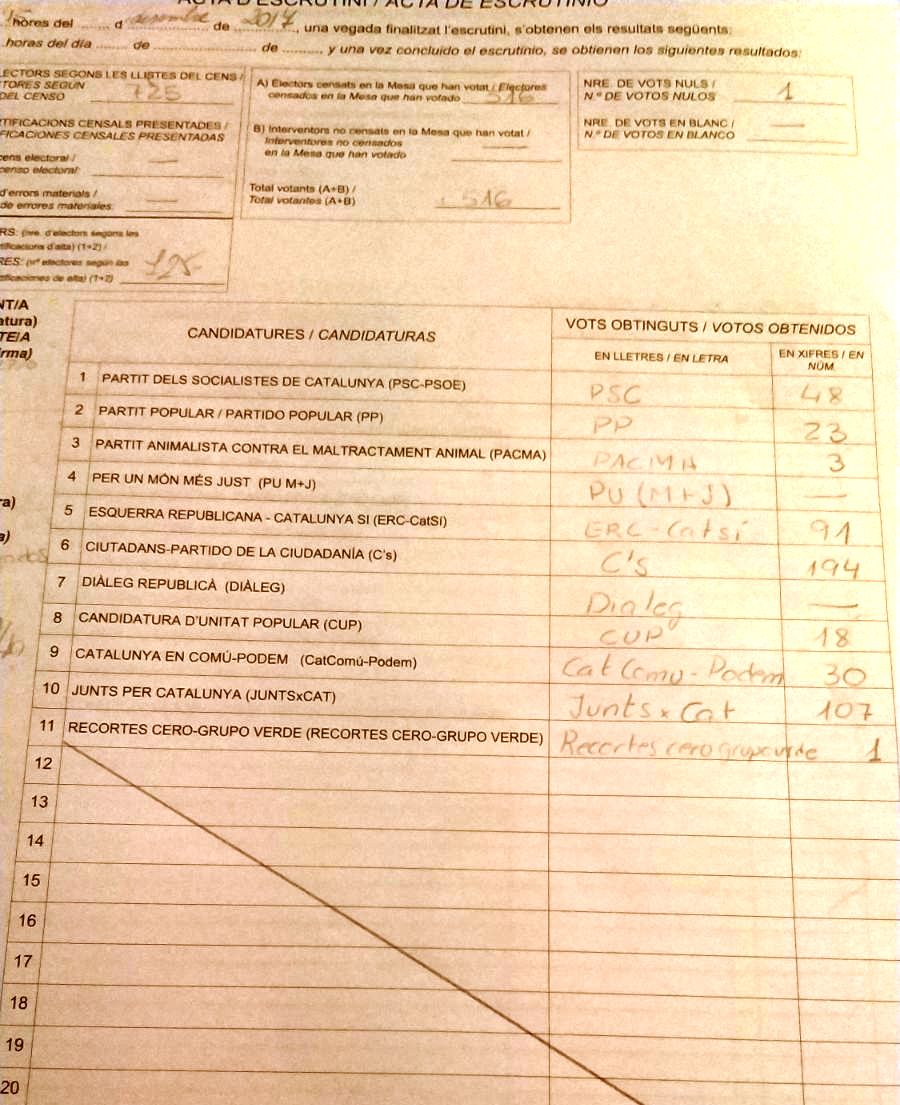 ACTA D'ESCRUTINI / ACTA DE ESCRUTINIO
hores del ........ d desembre de 2017, una vegada finalitzat l'escrutini, s'obtenen els resultats següents:
horas del día ........ de .................... de .........., y una vez concluido el escrutinio, se obtienen los siguientes resultados:
ECTORS SEGONS LES LLISTES DEL CENS /
TORES SEGUN
DEL CENSO 725
TIFICACIONS CENSALS PRESENTADES /
FICACIONES CENSALES PRESENTADAS
cens electoral / —
censo electoral:
d'errors materials / —
de errores materiales:
RS: (nre. d'electors segons les
tificacions d'alta) (1+2) /
RES: (nº electores según las
tificaciones de alta) (1+2)
A) Electors censats en la Mesa que han votat / Electores
censados en la Mesa que han votado 516
B) Interventors no censats en la Mesa que han votat /
Interventores no censados —
en la Mesa que han votado
Total votants (A+B) /
Total votantes (A+B) 516
NRE. DE VOTS NULS / 1
N.º DE VOTOS NULOS
NRE. DE VOTS EN BLANC / —
N.º DE VOTOS EN BLANCO
NT/A
atura)
TE/A
rma)
ra)
a)
CANDIDATURES / CANDIDATURAS
VOTS OBTINGUTS / VOTOS OBTENIDOS
EN LLETRES / EN LETRA
EN XIFRES / EN
NÚM.
1 PARTIT DELS SOCIALISTES DE CATALUNYA (PSC-PSOE) PSC 48
2 PARTIT POPULAR / PARTIDO POPULAR (PP) PP 23
3 PARTIT ANIMALISTA CONTRA EL MALTRACTAMENT ANIMAL (PACMA) PACMA 3
4 PER UN MÓN MÉS JUST (PU M+J) PU (M+J) —
5 ESQUERRA REPUBLICANA - CATALUNYA SI (ERC-CatSí) ERC-Catsí 91
6 CIUTADANS-PARTIDO DE LA CIUDADANÍA (C's) C's 194
7 DIÀLEG REPUBLICÀ (DIÀLEG) Dialeg —
8 CANDIDATURA D'UNITAT POPULAR (CUP) CUP 18
9 CATALUNYA EN COMÚ-PODEM (CatComú-Podem) Cat Comu - Podem 30
10 JUNTS PER CATALUNYA (JUNTSxCAT) Junts x Cat 107
11 RECORTES CERO-GRUPO VERDE (RECORTES CERO-GRUPO VERDE) Recortes cero grupo verde 1
12
13
14
15
16
17
18
19
20